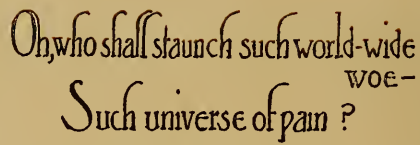 Oh, who shall staunch such world-wide
woe—
Such universe of pain?